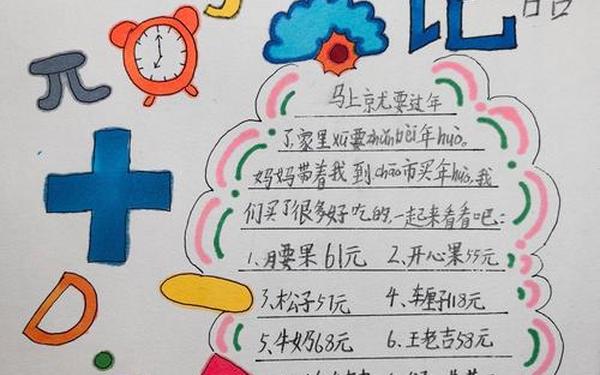 π
记
马上京尤要过年
了,家里xū要zhǔnbèi年huò。
妈妈带着我到chāo市买年huò,我
们买了很多好吃的,一起来看看吧:
1、月要果61元 2、开心果55元
3、松子57元 4、车厘子118元
5、牛奶68元 6、王老吉58元